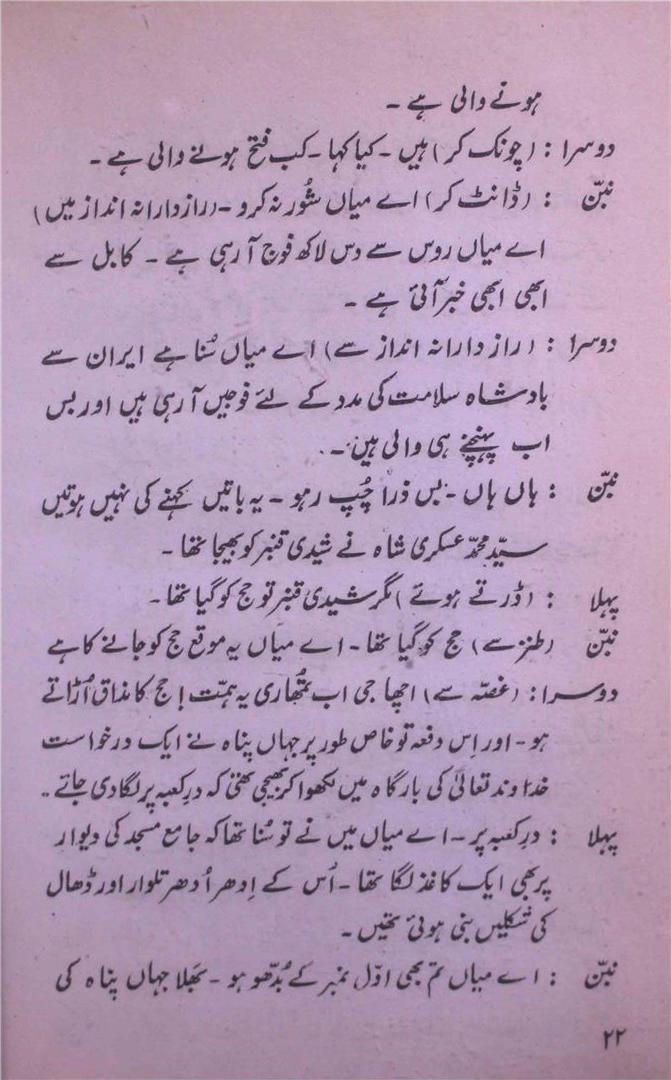 ہونے والی ہے ۔
دوسرا : (چونک کر) ہیں ۔ کیا کہا ۔ کب فتح ہونے والی ہے ۔
نبّن : (ڈانٹ کر) اے میاں شُور نہ کرو ۔ (رازدارانہ انداز میں)
اے میاں روس سے دس لاکھ فوج آ رہی ہے ۔ کابل سے
ابھی ابھی خبر آئی ہے ۔
دوسرا : (رازدارانہ انداز سے) اے میاں سُنا ہے ایران سے
بادشاہ سلامت کی مدد کے لئے فوجیں آ رہی ہیں اور بس
اب پہنچنے ہی والی ہیں ۔
نبّن : ہاں ہاں ۔ بس ذرا چُپ رہو ۔ یہ باتیں کہنے کی نہیں ہوتیں
سیّد محمّد عسکری شاہ نے شیدی قنبر کو بھیجا تھا ۔
پہلا : (ڈرتے ہوئے) مگر شیدی قنبر تو حج کو گیا تھا ۔
نبّن (طنز سے) حج کو گیا تھا ۔ اے میاں یہ موقع حج کو جانے کا ہے
دوسرا : (غصّہ سے) اچھا جی اب تمُھاری یہ ہمّت ! حج کا مذاق اُڑاتے
ہو ۔ اور اِس دفعہ تو خاص طور پر جہاں پناہ نے ایک درخواست
خداوند تعالیٰ کی بارگاہ میں لکھوا کر بھیجی تھی کہ درِ کعبہ پر لگا دی جاتے ۔
پہلا : درِ کعبہ پر ۔ اے میاں میں نے تو سُنا تھا کہ جامع مسجد کی دیوار
پر بھی ایک کاغذ لگا تھا ۔ اُس کے اِدھر اُدھر تلوار اور ڈھال
کی شکلیں بنی ہوئی تھیں ۔
نبّن : اے میاں تم بھی اوّل نمبر کے بُدّھو ہو ۔ بَھلا جہاں پناہ کی
۲۲